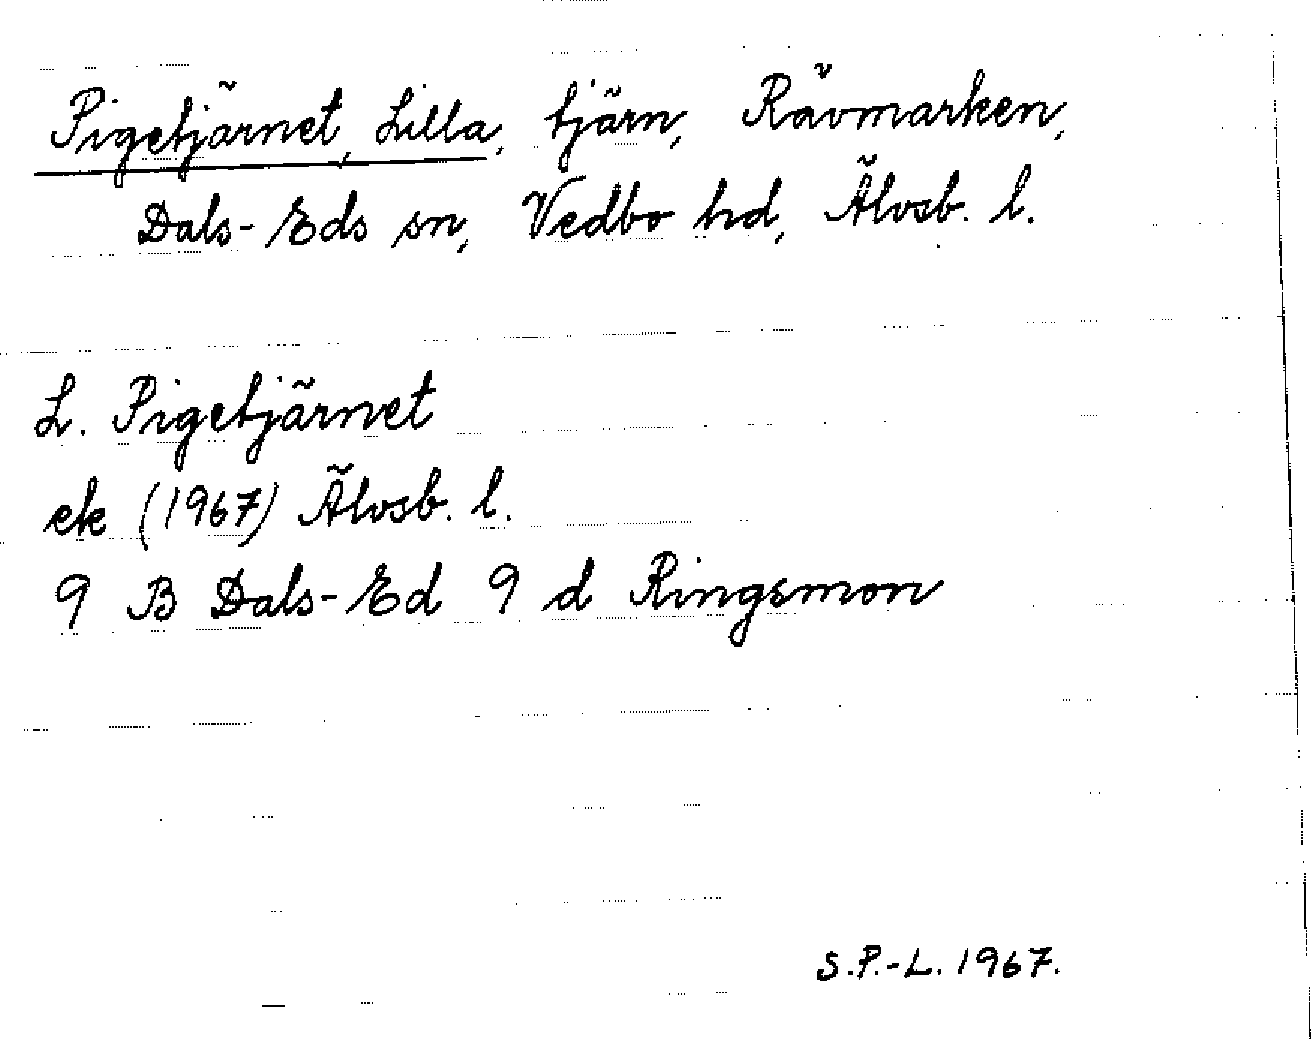 Pigetjärnet, Lilla, tjärn, Rävmarken,
Dals-Eds sn, Vedbo hd, Älvsb. l.
L. Pigetjärnet
ek (1967) Älvsb. l.
9 B Dals-Ed 9 d Ringsmon
S.P.-L. 1967.